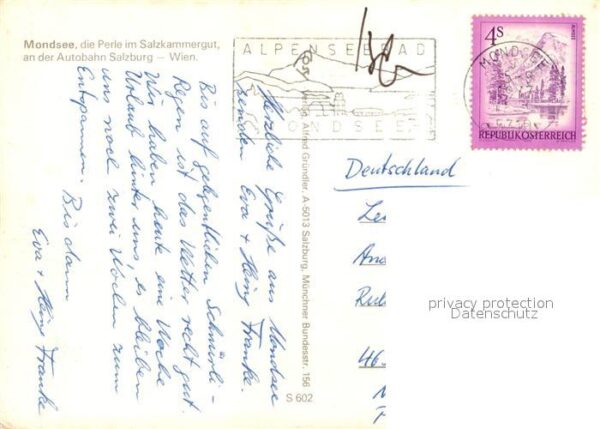 Mondsee, die Perle im Salzkammergut,
an der Autobahn Salzburg – Wien.
ALPENSEEBAD
MONDSEE
4S
MONDSEE
REPUBLIK ÖSTERREICH
Herzliche Grüße aus Mondsee
senden Eva + Heinz Franke.
Bis auf gelegentlichen Schnürli-
Regen ist das Wetter recht gut.
Wir haben heute eine Woche
Urlaub hinter uns, es bleiben
uns noch zwei Wochen zum
Entspannen. Bis dann
Eva + Heinz Franke
Verlag Alfred Gründler, A-5013 Salzburg, Münchner Bundesstr. 156
S 602
Deutschland
46
privacy protection
Datenschutz